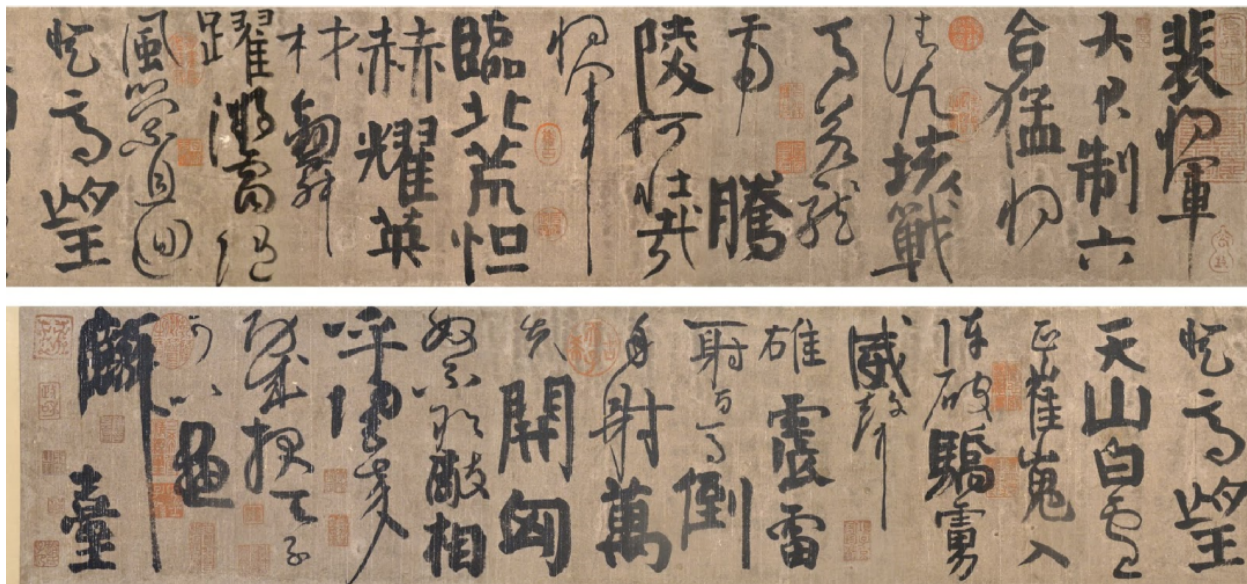 裴將軍
大君制六
合猛將
清九垓戰
馬若龍
虎騰
陵何壯哉
將軍
臨北荒烜
赫耀英
材劍舞
躍游電隨
風縈且迴
登高望
登高望
天山白雲
正崔嵬入
陣破驕虜
威聲
雄震雷
一射百馬倒
再射萬
夫開匈
奴不敢敵相
呼歸去來
功成報天子
可以畫
麟臺